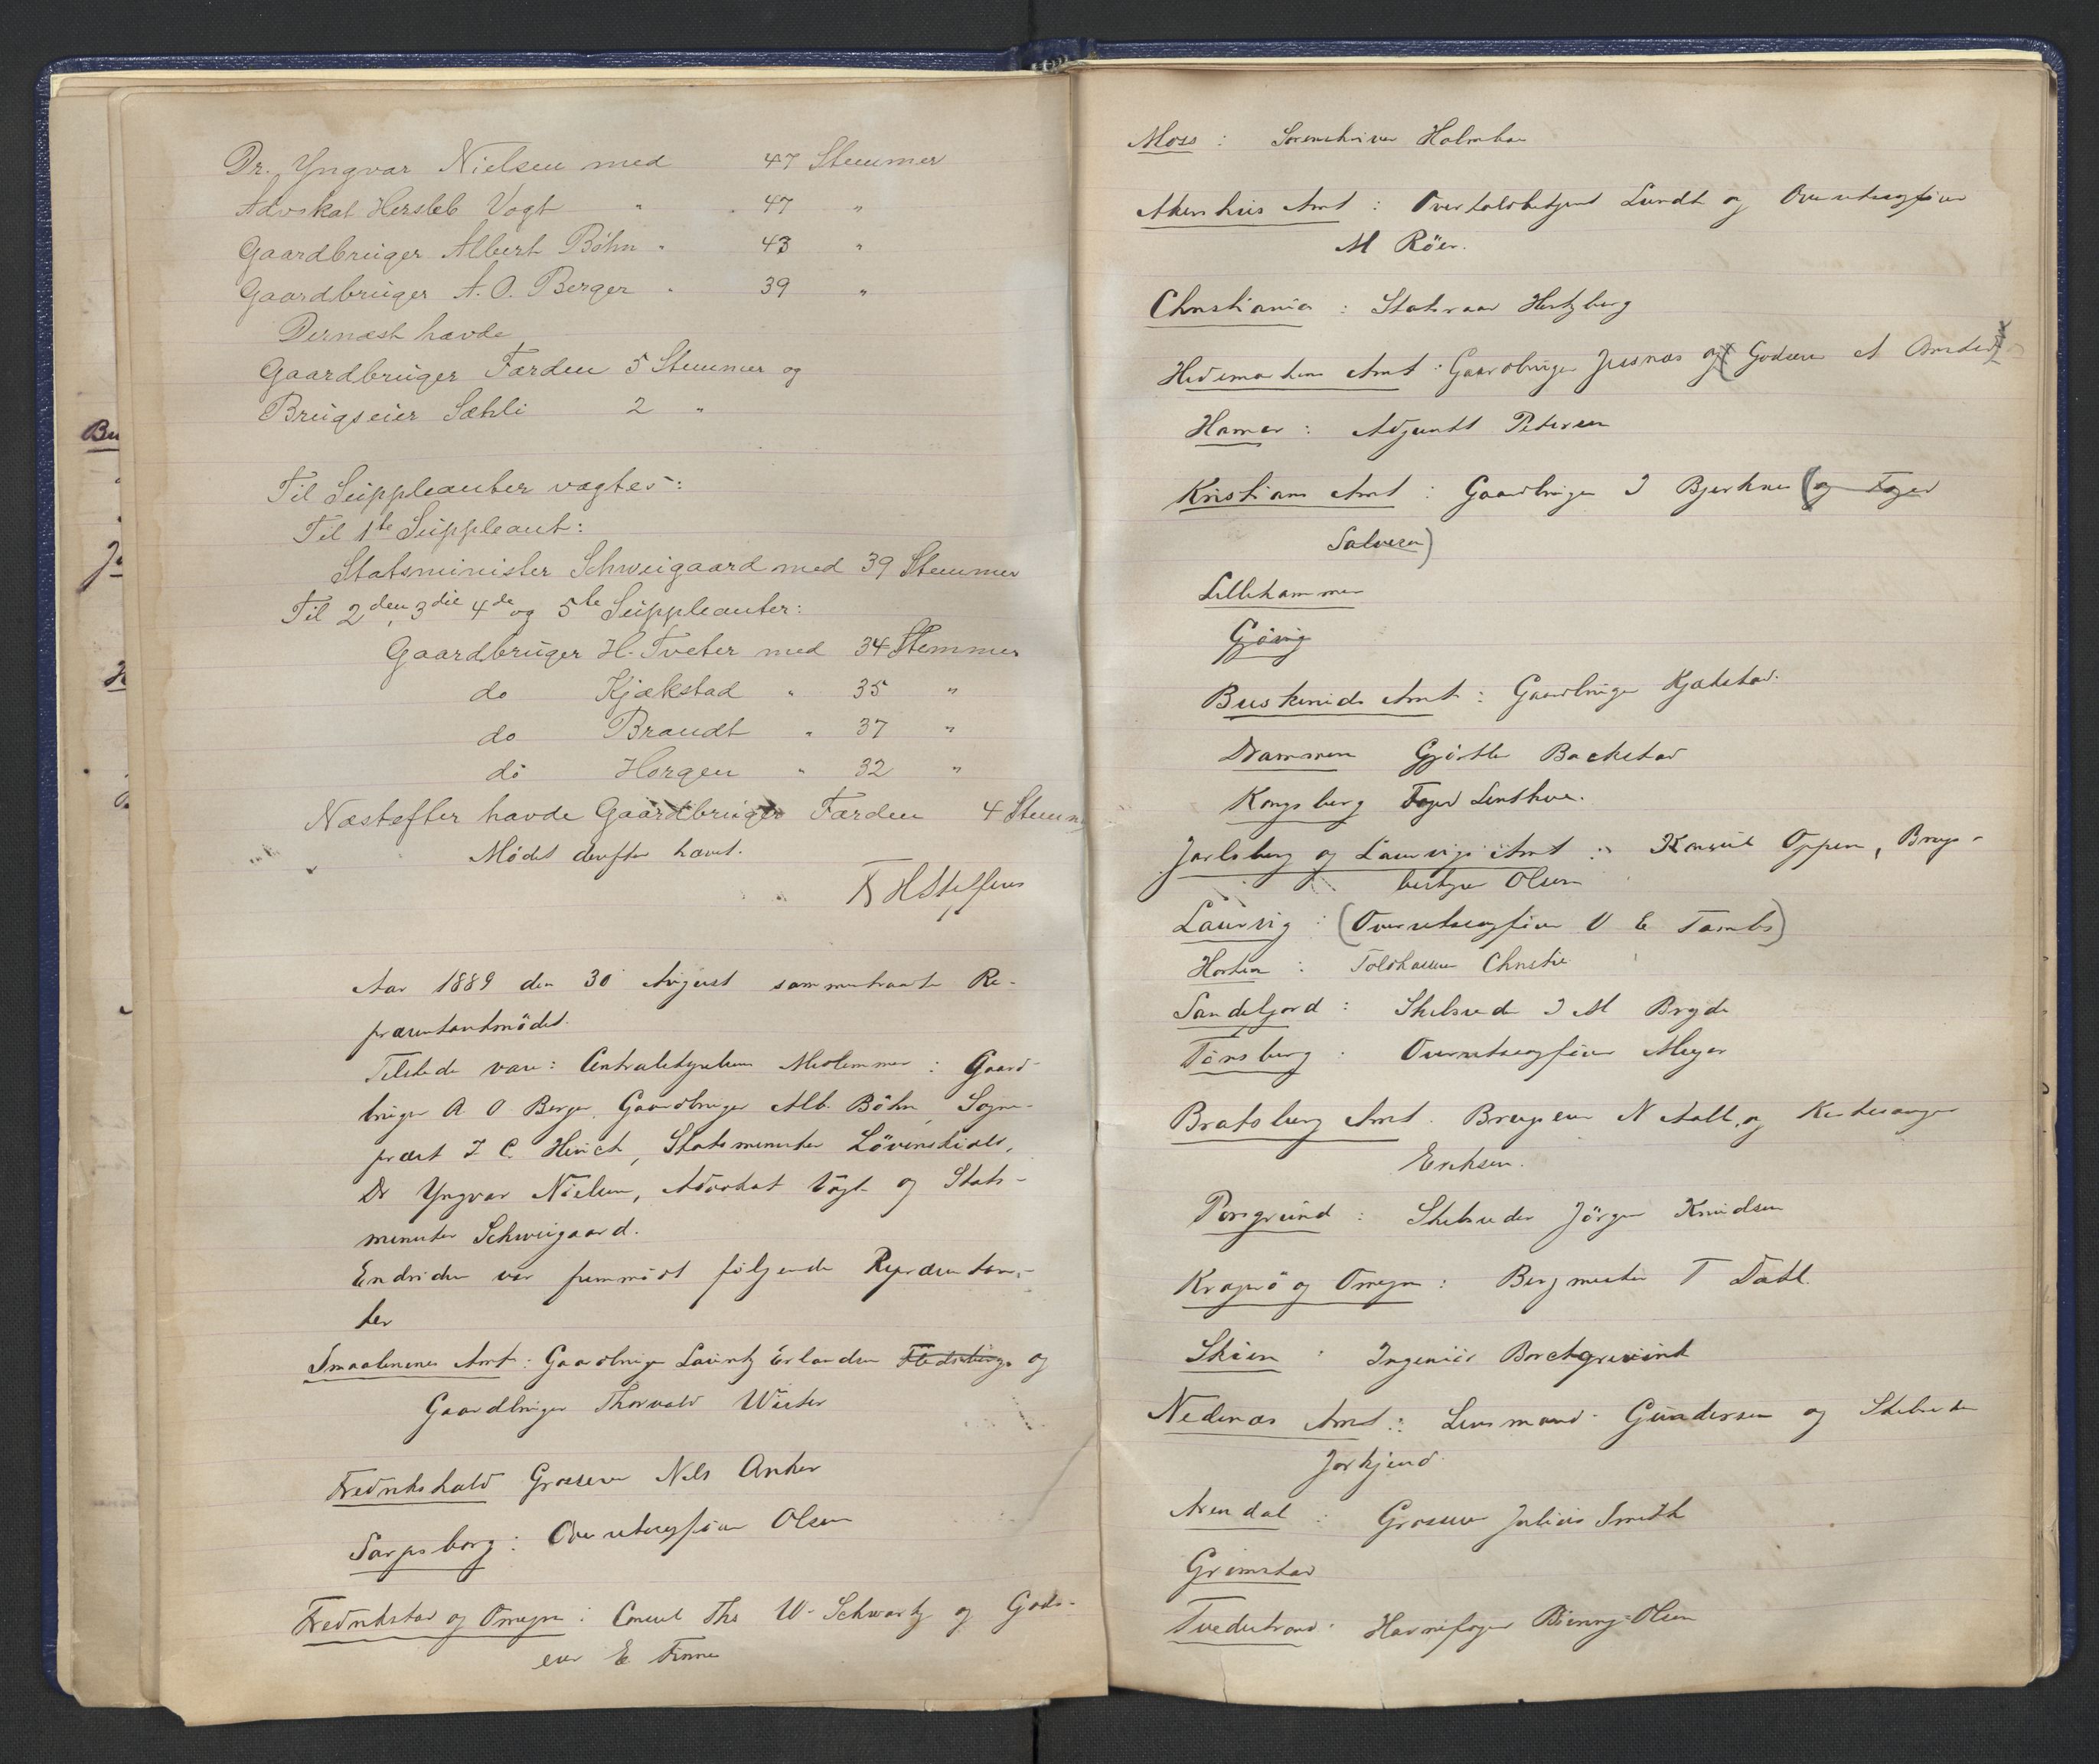 Dr. Yngvar Nielsen med 47 Stemmer
Advokat Hersleb Vogt " 47 "
Gaardbruger Albert Böhn " 43 "
Gaardbruger A. O. Berger " 39 "
Dernæst havde
Gaardbruger Færden 5 Stemmer og
Brugseier Sæhli 2 "
Til Suppleanter valgtes:
Til 1te Suppleant:
Statsminister Schweigaard med 39 Stemmer
Til 2den, 3die 4de og 5te Suppleanter:
Gaardbruger H. Tveter med 34 Stemmer
do Kjækstad " 35 "
do Brandt " 37 "
do Horgen " 32 "
Næstefter havde Gaardbruger Færden 4 Stemm
Mödet derefter hævet.
Aar 1889 den 30 August sammentraadte Re-
præsentantmödet.
Tilstede vare: Centralstyrelsens Medlemmer: Gaard-
bruger A O Berger, Gaardbruger Alb. Böhn, Sogne-
præst J. C. Heuch, Statsminister Lövenskiold,
Dr Yngvar Nielsen, Advokat Vogt og Stats-
minister Schweigaard.
Endvidere var fremmödt fölgende Repræsentan-
ter
Smaalenenes Amt: Gaardbruger Lauritz Erlandsen og
Gaardbruger Thorvald Wüster
Fredrikshald Grosserer Nils Anker
Sarpsborg: Overretssagförer Olsen
Fredrikstad og Omegn: Consul Ths W. Schwartz og Gods-
eier E
Moss: Sorenskriver
Akershus Amt: Overtoldbetjent Lundt og Overretssagförer
M Röer.
Christiania: Statsraad Hertzberg
Hedemarkens Amt: Gaardbruger Jessnæs og Godseier A
Hamar: Adjunkt Petersen
Kristians Amt: Gaardbruger J Bjerknes (og Foged
Salvesen)
Lillehammer
Gjövig
Buskeruds Amt: Gaardbruger Kjækstad.
Drammen Gjörtler Backstad
Kongsberg Foged Lenthve.
Jarlsberg og Laurvigs Amt: Konsul Oppen, Brugs-
bestyrer Olsen
Laurvig: (Overretssagförer V E Tambs)
Horten: Toldkasserer Christie
Sandefjord: Skibsreder J M Bryde
Tönsberg: Overretssagförer Meyer
Bratsberg Amt. Brugseier N Aall, og Kirkesanger
Eriksen.
Porsgrund: Skibsreder Jörgen Knudsen
Kragerö og Omegn: Bergmester T Dahll.
Skien: Ingeniör Borchgrevink
Nedenæs Amt: Lensmand Gundersen og Skibsreder
Jorkjend
Arendal: Grosserer Julius Smith
Grimstad
Tvedestrand: Havnefoged Olsen